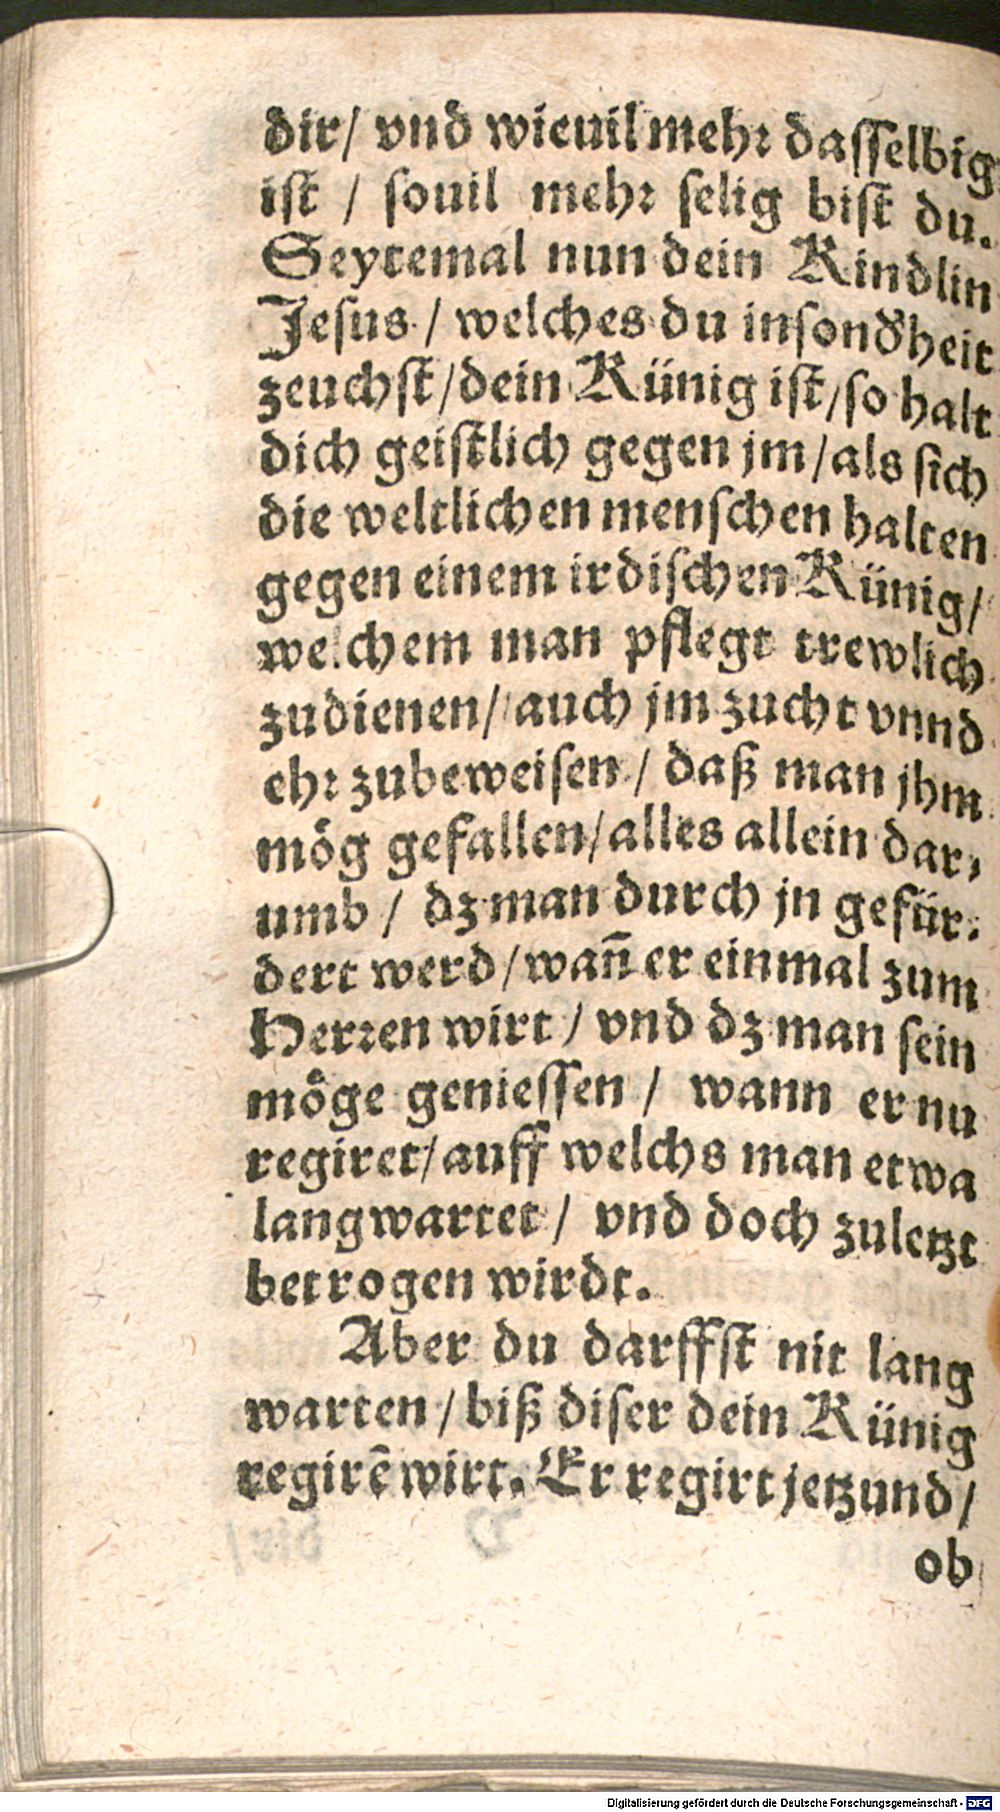 dir/ vnd wieuil mehr dasselbig
ist / souil mehr selig bist du.
Seytemal nun dein Kindlin
Jesus / welches du insonđheit
zeuchst/dein Künig ist/so halt
dich geistlich gegen jm/als sich
die weltlichen menschen halten
gegen einem irdischen Künig/
welchem man pflegt trewlich
zudienen/ auch jm zucht vnnd
ehr zubeweisen / daß man jhm
mög gefallen/alles allein dar-
umb / dz man durch jn gefür-
dert werd/wañ er einmal zum
Herren wirt / vnd dz man sein
möge geniessen / wann er nu
regiret/auff welchs man etwa
lang wartet / vnd doch zuletzt
betrogen wirdt.
Aber du darffst nit lang
warten / biß diser dein Künig
regirē wirt. Er regirt jetzund/
ob
Digitalisierung gefördert durch die Deutsche Forschungsgemeinschaft - DFG